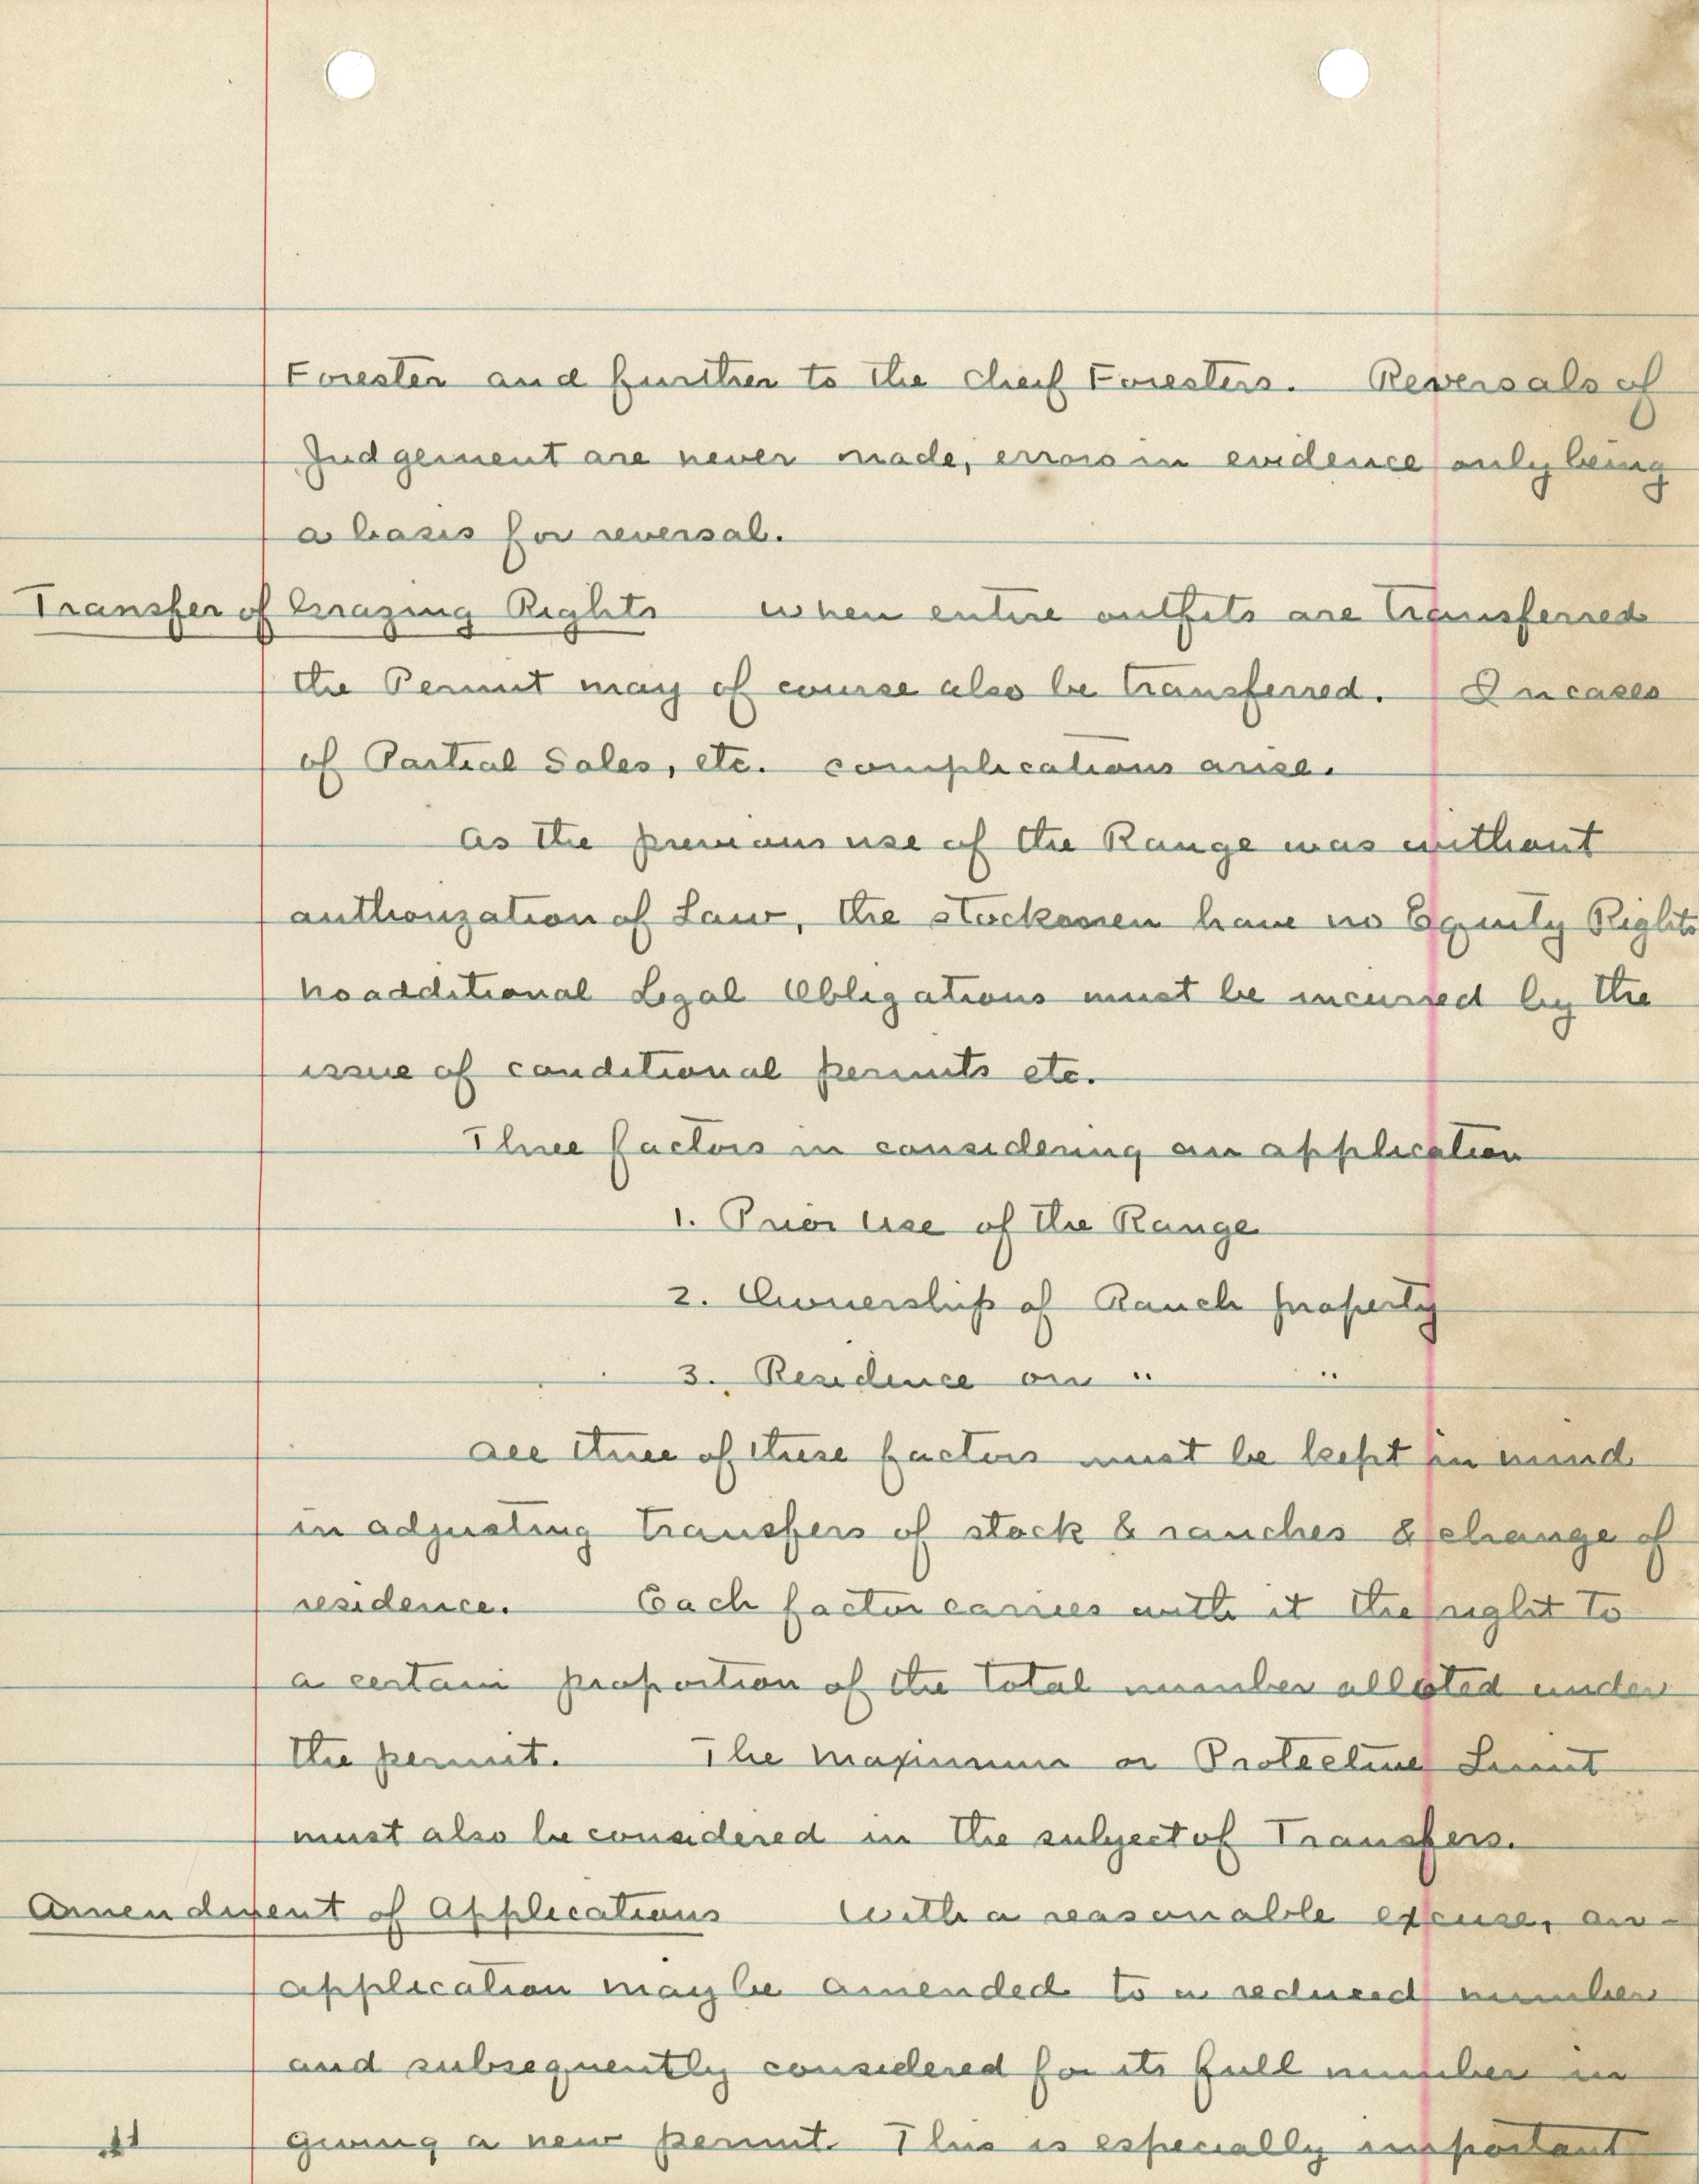 Forester and further to the cheif Foresters. Reversals of
Judgement are never made, errors in evidence only being
a basis for reversal.
Transfer of Grazing Rights when entire outfits are transferred
the Permit may of course also be transferred. In cases
of Partial Sales, etc. complications arise.
As the previous use of the Range was without
authorization of Law, the stockmen have no Equity Rights
No additional Legal Obligations must be incurred by the
issue of conditional permits etc.
Three factors in considering an application
1. Prior Use of the Range
2. Ownership of Ranch property
3. Residence on " "
All three of these factors must be kept in mind
in adjusting transfers of stock & ranches & change of
residence. Each factor carries with it the right to
a certain proportion of the total number alloted under
the permit. The Maximum or Protective Limit
must also be considered in the subject of Transfers.
Amendment of Applications With a reasonable excuse, an
application may be amended to a reduced number
and subsequently considered for its full number in
11 giving a new permit. This is especially important